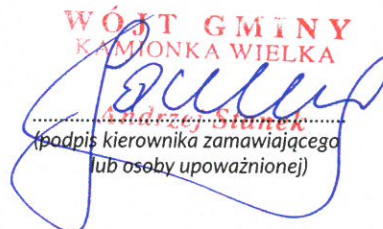 WÓJT GMINY
KAMIONKA WIELKA
Andrzej Stanek
(podpis kierownika zamawiającego
lub osoby upoważnionej)